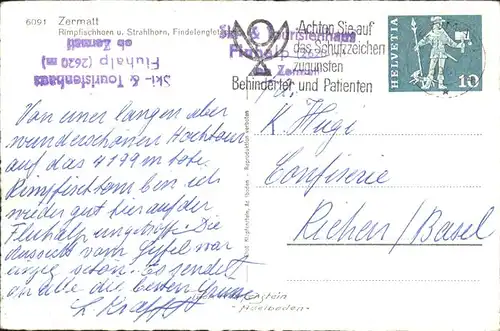 6091 Zermatt
Rimpfischhorn u. Strahlhorn, Findelengletscher
Ski- & Touristenhaus
Fluhalp (2620 m)
ob Zermatt
Ski- & Touristenhaus
Fluhalp
Zermatt
Achten Sie auf
das Schutzzeichen
zugunsten
Behinderter und Patienten
HELVETIA
10
Von einer langen aber
wunderschönen Hochtour
auf das 4199 m hohe
Rimpfischhorn bin ich
wieder gut hier auf der
Fluhalp Die
Aussicht vom Gipfel war
schön. Es sendet
alle die besten
L.
K. Hugi
Confiserie
Riehen/Basel
Klopfenstein, Adelboden - Reproduktion verboten
Klopfenstein
- Adelboden -